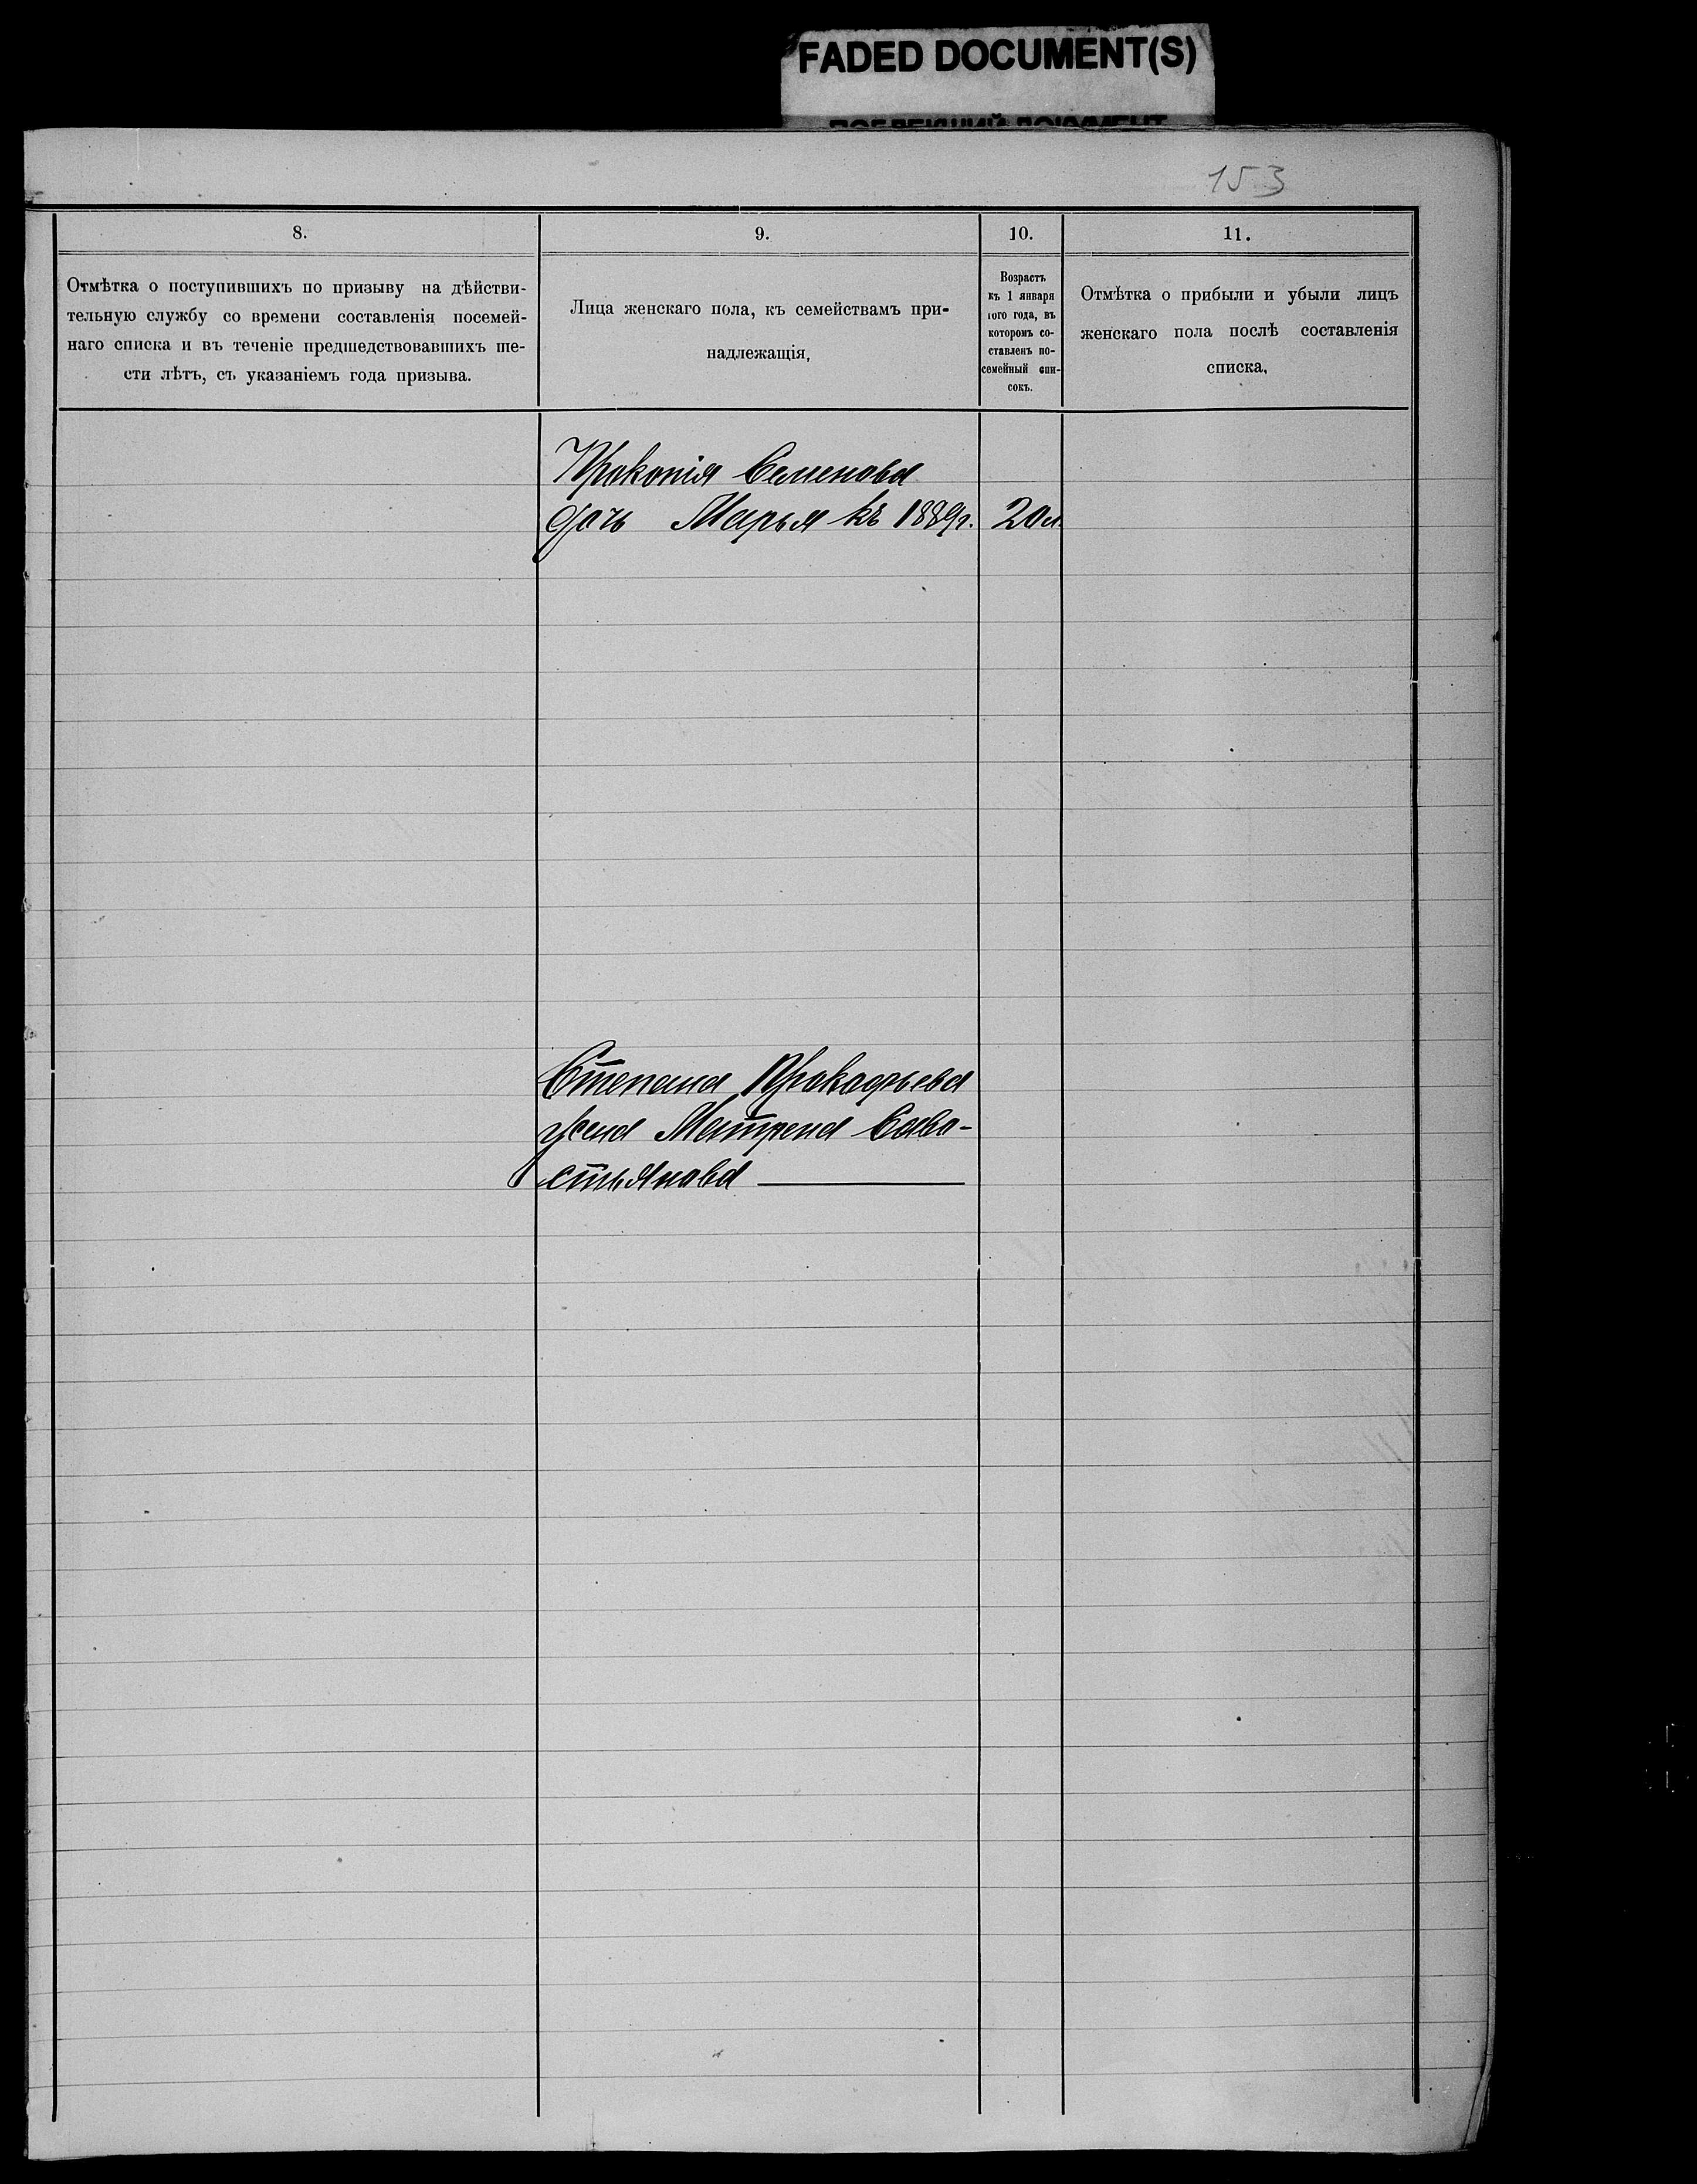 FADED DOCUMENT(S)
ПОБЛЕКШИЙ ДОКУМЕНТ
153
8.
9.
10.
11.
Отмѣтка о поступившихъ по призыву на дѣйстви-
тельную службу со времени составленія посемей-
наго списка и въ теченіе предшедствовавшихъ ше-
сти лѣтъ, съ указаніемъ года призыва.
Лица женскаго пола, къ семействамъ при-
надлежащія,
Возрастъ
къ 1 января
того года, въ
которомъ со-
ставленъ по-
семейный спи-
сокъ.
Отмѣтка о прибыли и убыли лицъ
женскаго пола послѣ составленія
списка,
Прокопія Семенова
дочь Марья къ 1889г. 20 л
Степана Прокофьева
жена Матрена Саво-
стьянова